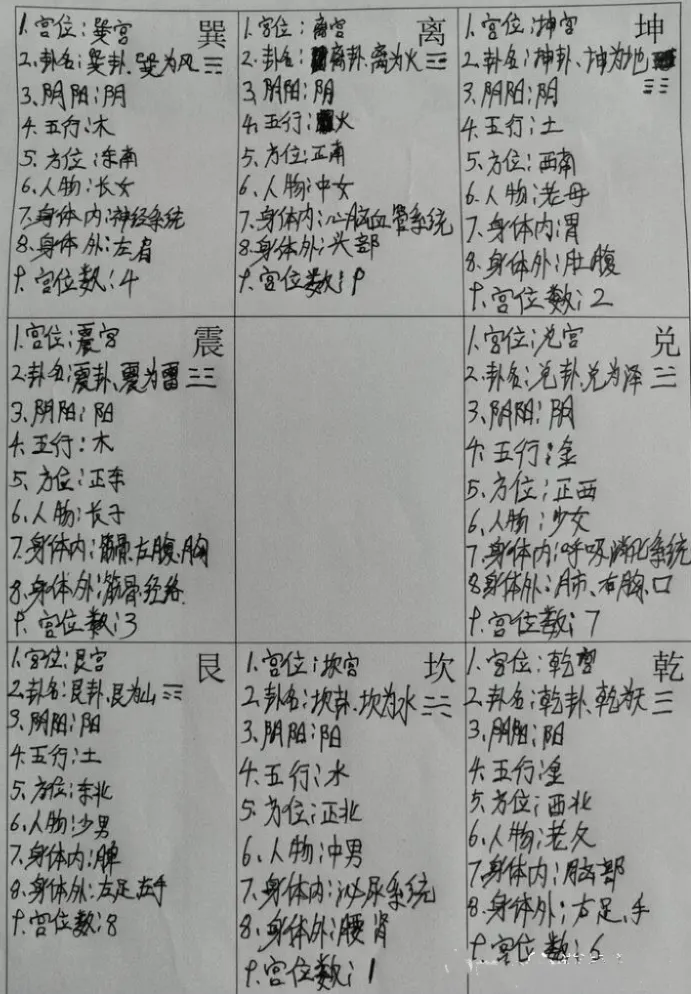 巽
1.宫位：巽宫
2.卦名：巽卦、巽为风☴
3.阴阳：阴
4.五行：木
5.方位：东南
6.人物：长女
7.身体内：神经系统
8.身体外：左肩
9.宫位数：4
离
1.宫位：离宫
2.卦名：离卦、离为火☲
3.阴阳：阴
4.五行：火
5.方位：正南
6.人物：中女
7.身体内：心脑血管系统
8.身体外：头部
9.宫位数：9
坤
1.宫位：坤宫
2.卦名：坤卦、坤为地
☷
3.阴阳：阴
4.五行：土
5.方位：西南
6.人物：老母
7.身体内：胃
8.身体外：肚腹
9.宫位数：2
震
1.宫位：震宫
2.卦名：震卦、震为雷☳
3.阴阳：阳
4.五行：木
5.方位：正东
6.人物：长子
7.身体内：筋骨、左腹、胸
8.身体外：筋骨、经络
9.宫位数：3
兑
1.宫位：兑宫
2.卦名：兑卦、兑为泽☱
3.阴阳：阴
4.五行：金
5.方位：正西
6.人物：少女
7.身体内：呼吸、消化系统
8.身体外：肺、右胸、口
9.宫位数：7
艮
1.宫位：艮宫
2.卦名：艮卦、艮为山☶
3.阴阳：阳
4.五行：土
5.方位：东北
6.人物：少男
7.身体内：脾
8.身体外：左足、左手
9.宫位数：8
坎
1.宫位：坎宫
2.卦名：坎卦、坎为水☵
3.阴阳：阳
4.五行：水
5.方位：正北
6.人物：中男
7.身体内：泌尿系统
8.身体外：腰肾
9.宫位数：1
乾
1.宫位：乾宫
2.卦名：乾卦、乾为天☰
3.阴阳：阳
4.五行：金
5.方位：西北
6.人物：老父
7.身体内：脑部
8.身体外：右足、手
9.宫位数：6